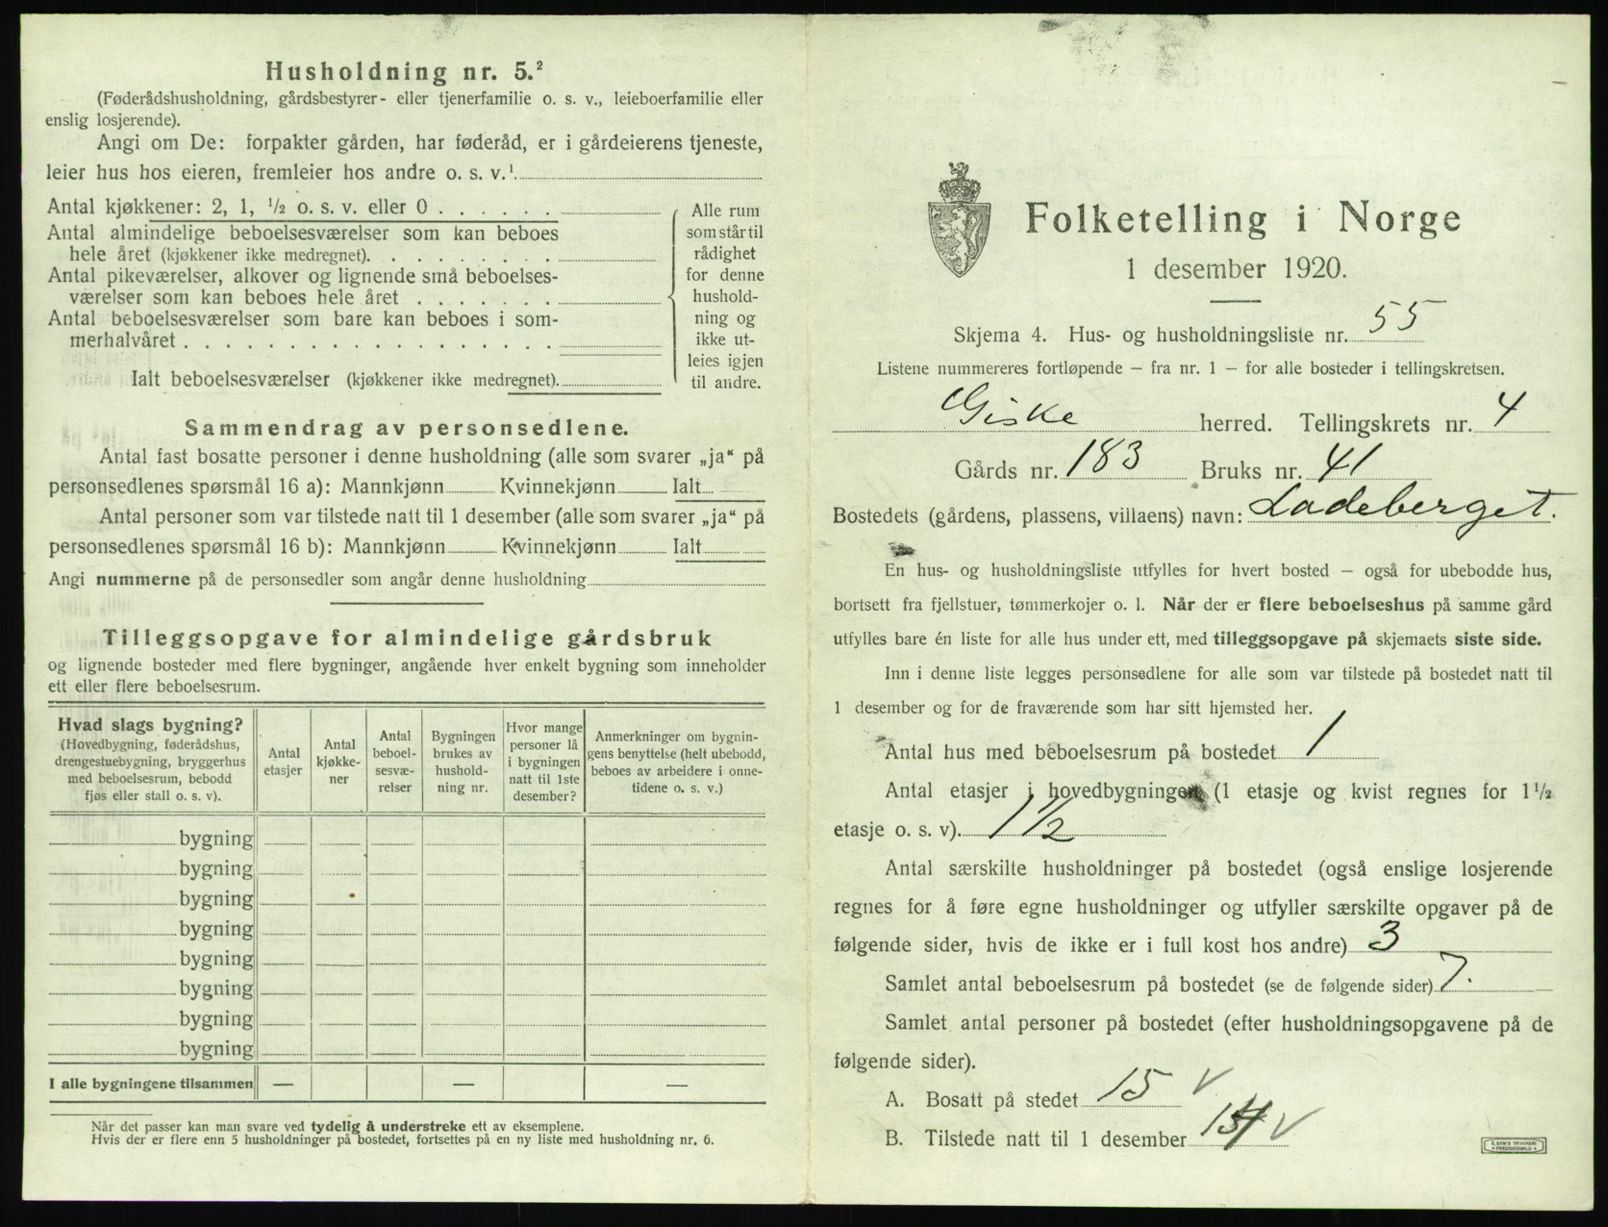 Husholdning nr. 5.²
(Føderådshusholdning, gårdsbestyrer- eller tjenerfamilie o. s. v., leieboerfamilie eller
enslig losjerende).
Angi om De: forpakter gården, har føderåd, er i gårdeierens tjeneste,
leier hus hos eieren, fremleier hos andre o. s. v.¹
Antal kjøkkener: 2, 1, ½ o. s. v. eller 0 . . . . . .
Antal almindelige beboelsesværelser som kan beboes
hele året (kjøkkener ikke medregnet). . . . . . . . .
Antal pikeværelser, alkover og lignende små beboelses-
værelser som kan beboes hele året . . . . . . .
Antal beboelsesværelser som bare kan beboes i som-
merhalvåret . . . . . . . . . . . . . . . . . .
Ialt beboelsesværelser (kjøkkener ikke medregnet).
Alle rum
som står til
rådighet
for denne
hushold-
ning og
ikke ut-
leies igjen
til andre.
Sammendrag av personsedlene.
Antal fast bosatte personer i denne husholdning (alle som svarer „ja“ på
personsedlenes spørsmål 16 a): Mannkjønn Kvinnekjønn Ialt
Antal personer som var tilstede natt til 1 desember (alle som svarer „ja“ på
personsedlenes spørsmål 16 b): Mannkjønn Kvinnekjønn Ialt
Angi nummerne på de personsedler som angår denne husholdning
Tilleggsopgave for almindelige gårdsbruk
og lignende bosteder med flere bygninger, angående hver enkelt bygning som inneholder
ett eller flere beboelsesrum.
Hvad slags bygning?
(Hovedbygning, føderådshus,
drengestuebygning, bryggerhus
med beboelsesrum, bebodd
fjøs eller stall o. s. v).
Antal
etasjer
Antal
kjøkke-
ner
Antal
beboel-
sesvæ-
relser
Bygningen
brukes av
hushold-
ning nr.
Hvor mange
personer lå
i bygningen
natt til 1ste
desember?
Anmerkninger om bygnin-
gens benyttelse (helt ubebodd,
beboes av arbeidere i onne-
tidene o. s. v.)
bygning
bygning
bygning
bygning
bygning
bygning
bygning
bygning
I alle bygningene tilsammen — — —
Når det passer kan man svare ved tydelig å understreke ett av eksemplene.
Hvis der er flere enn 5 husholdninger på bostedet, fortsettes på en ny liste med husholdning nr. 6.
Folketelling i Norge
1 desember 1920.
Skjema 4. Hus- og husholdningsliste nr. 55
Listene nummereres fortløpende — fra nr. 1 — for alle bosteder i tellingskretsen.
Giske herred. Tellingskrets nr. 4
Gårds nr. 183 Bruks nr. 41
Bostedets (gårdens, plassens, villaens) navn: Ladeberget.
En hus- og husholdningsliste utfylles for hvert bosted — også for ubebodde hus,
bortsett fra fjellstuer, tømmerkojer o. l. Når der er flere beboelseshus på samme gård
utfylles bare én liste for alle hus under ett, med tilleggsopgave på skjemaets siste side.
Inn i denne liste legges personsedlene for alle som var tilstede på bostedet natt til
1 desember og for de fraværende som har sitt hjemsted her.
Antal hus med beboelsesrum på bostedet 1
Antal etasjer i hovedbygningen (1 etasje og kvist regnes for 1½
etasje o. s. v). 1½
Antal særskilte husholdninger på bostedet (også enslige losjerende
regnes for å føre egne husholdninger og utfyller særskilte opgaver på de
følgende sider, hvis de ikke er i full kost hos andre) 3
Samlet antal beboelsesrum på bostedet (se de følgende sider) 7.
Samlet antal personer på bostedet (efter husholdningsopgavene på de
følgende sider).
A. Bosatt på stedet 15 V
B. Tilstede natt til 1 desember 14 V